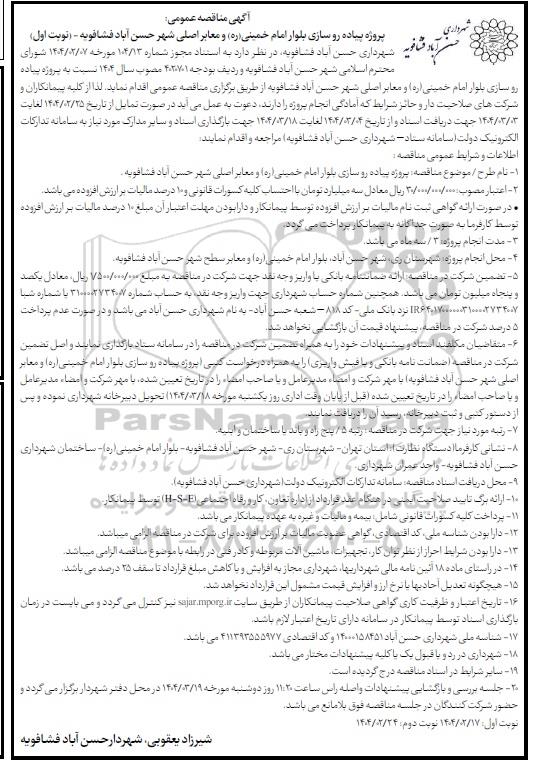 آگهی مناقصه عمومی:
پروژه پیاده رو سازی بلوار امام خمینی(ره) و معابر اصلی شهر حسن آباد فشافویه - (نوبت اول)
شهرداری حسن آباد فشافویه
شهرداری حسن آباد فشافویه، در نظر دارد به استناد مجوز شماره ۱۰۴/۱۳ مورخه ۱۴۰۴/۰۲/۰۷ شورای
محترم اسلامی شهر حسن آباد فشافویه و ردیف بودجه ۴۰۲۰۷۰۱ مصوب سال ۱۴۰۴ نسبت به پروژه پیاده
رو سازی بلوار امام خمینی(ره) و معابر اصلی شهر حسن آباد فشافویه از طریق برگزاری مناقصه عمومی اقدام نماید. لذا از کلیه پیمانکاران و
شرکت های صلاحیت دار و حائز شرایط که آمادگی انجام پروژه را دارند، دعوت به عمل می آید در صورت تمایل از تاریخ ۱۴۰۴/۰۲/۲۵ لغایت
۱۴۰۴/۰۳/۳ جهت دریافت اسناد و از تاریخ ۱۴۰۴/۰۳/۰۴ لغایت ۱۴۰۴/۰۳/۱۸ جهت بارگذاری اسناد و سایر مدارک مورد نیاز به سامانه تدارکات
الکترونیک دولت(سامانه ستاد– شهرداری حسن آباد فشافویه) مراجعه و اقدام نمایند:
اطلاعات و شرایط عمومی مناقصه :
۱- نام طرح / موضوع مناقصه: پروژه پیاده رو سازی بلوار امام خمینی(ره) و معابر اصلی شهر حسن آباد فشافویه .
۲- اعتبار مصوب: ۳۰/۰۰۰/۰۰۰/۰۰۰ ریال معادل سه میلیارد تومان با احتساب کلیه کسورات قانونی و ۱۰ درصد مالیات بر ارزش افزوده می باشد.
• در صورت ارائه گواهی ثبت نام مالیات بر ارزش افزوده توسط پیمانکار و دارا بودن مهلت اعتبار آن مبلغ ۱۰ درصد مالیات بر ارزش افزوده
توسط کارفرما به صورت جداگانه به پیمانکار پرداخت می گردد.
۳- مدت انجام پروژه: ۳ / سه ماه می باشد.
۴- محل انجام پروژه: شهرستان ری، شهر حسن آباد، بلوار امام خمینی(ره) و معابر سطح شهر حسن آباد فشافویه.
۵- تضمین شرکت در مناقصه: ارائه ضمانتنامه بانکی یا واریز وجه نقد جهت شرکت در مناقصه به مبلغ ۱/۵۰۰/۰۰۰/۰۰۰ ریال، معادل یکصد
و پنجاه میلیون تومان می باشد. همچنین شماره حساب شهرداری جهت واریز وجه نقد، به حساب شماره ۳۱۰۰۰۰۲۷۳۴۰۰۷ با شماره شبا
نزد بانک ملی- کد ۸۱۸ – شعبه حسن آباد- به نام شهرداری حسن آباد می باشد و در صورت عدم پرداخت
۵ درصد شرکت در مناقصه، پیشنهاد قیمت آن بازگشایی نخواهد شد.
۶- متقاضیان مکلفند اسناد و پیشنهادات خود را به همراه تضمین شرکت در مناقصه را در سامانه ستاد بارگذاری نمایند و اصل تضمین
شرکت در مناقصه (ضمانت نامه بانکی و یا فیش واریزی) را به همراه درخواست کتبی (پروژه پیاده رو سازی بلوار امام خمینی(ره) و معابر
اصلی شهر حسن آباد فشافویه) با مهر شرکت و امضاء مدیرعامل و یا صاحب امضاء را در تاریخ تعیین شده، با مهر شرکت و امضاء مدیرعامل
و یا صاحب امضاء را در تاریخ تعیین شده (قبل از پایان وقت اداری روز یکشنبه مورخه ۱۴۰۴/۰۳/۱۸) تحویل دبیرخانه شهرداری نموده و پس
از دستور کتبی و ثبت دبیرخانه، رسید آن را دریافت نمایند.
۷- رتبه مورد نیاز جهت شرکت در مناقصه : رتبه ۵ / پنج راه و باند یا ساختمان و ابنیه.
۸- نشانی کارفرما(دستگاه نظارت): استان تهران- شهرستان ری- شهر حسن آباد فشافویه- بلوار امام خمینی(ره)- ساختمان شهرداری
حسن آباد فشافویه- واحد عمران شهرداری.
۹- محل دریافت اسناد مناقصه: سامانه تدارکات الکترونیک دولت(شهرداری حسن آباد فشافویه).
۱۰- ارائه برگ تایید صلاحیت ایمنی در هنگام عقد قرارداد از اداره تعاون، کار و رفاه اجتماعی(H-S-E) توسط پیمانکار.
۱۱- پرداخت کلیه کسورات قانونی شامل: بیمه و مالیات و غیره به عهده پیمانکار می باشد.
۱۲- دارا بودن شناسه ملی، کد اقتصادی، گواهی عضویت مالیات بر ارزش افزوده برای شرکت در مناقصه الزامی میباشد.
۱۳- دارا بودن شرایط احراز از نظر توان کار، تجهیزات، ماشین آلات مربوطه و کادر فنی در رابطه با موضوع مناقصه الزامی میباشد.
۱۴- در راستای ماده ۱۸ آئین نامه مالی شهرداریها، شهرداری مجاز به افزایش و یا کاهش مبلغ قرارداد تا سقف ۲۵ درصد می باشد.
۱۵- هیچگونه تعدیل آحادبها یا نرخ ارز و افزایش قیمت مشمول این قرارداد نخواهد شد.
۱۶- تاریخ اعتبار و ظرفیت کاری گواهی صلاحیت پیمانکاران از طریق سایت sajar.mporg.ir نیز کنترل می گردد و می بایست در زمان
بارگذاری اسناد توسط پیمانکار در سامانه دارای تاریخ اعتبار لازم باشد.
۱۷- شناسه ملی شهرداری حسن آباد ۱۴۰۰۰۱۵۸۴۵۱ و کد اقتصادی ۴۱۱۳۹۳۵۵۵۹۷۷ می باشد.
۱۸- شهرداری در رد و یا قبول یک یا کلیه پیشنهادات مختار می باشد.
۱۹- سایر شرایط در اسناد مناقصه درج گردیده است.
۲۰- جلسه بررسی و بازگشایی پیشنهادات واصله راس ساعت ۱۱:۲۰ روز دوشنبه مورخه ۱۴۰۴/۰۳/۱۹ در محل دفتر شهردار برگزار می گردد و
حضور شرکت کنندگان در جلسه مناقصه فوق بلامانع می باشد.
نوبت اول: ۱۴۰۴/۰۲/۱۷ نوبت دوم: ۱۴۰۴/۰۲/۲۴
شیرزاد یعقوبی، شهردار حسن آباد فشافویه